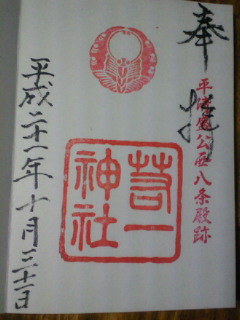 奉拝
平清盛公西八条殿跡
若一神社
平成二十一年十月三十一日